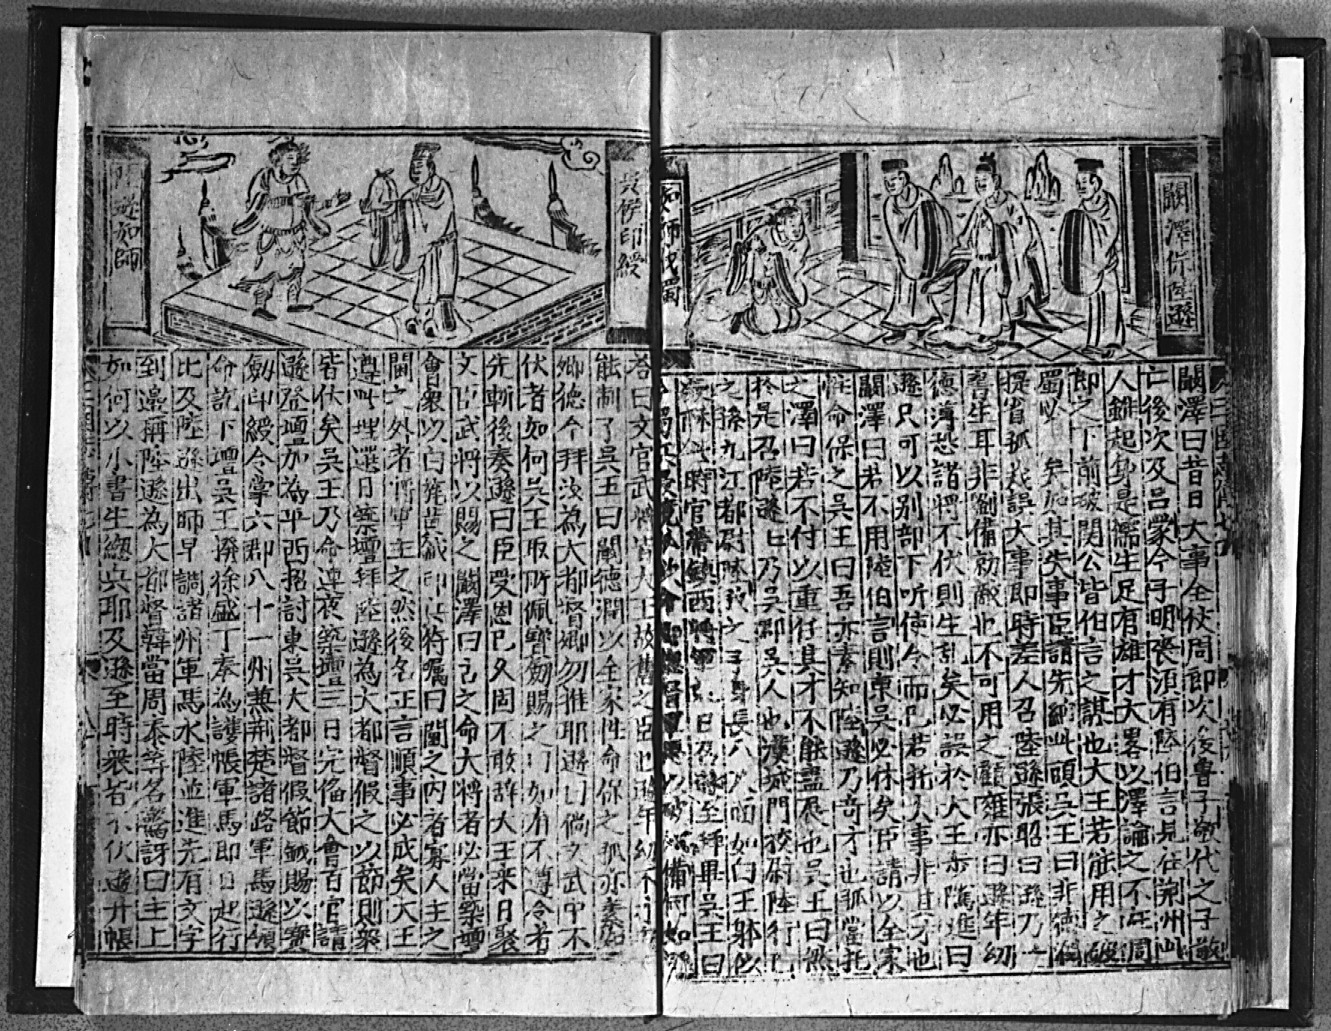 闞澤保陸遜
闞澤曰昔日大事全伏周郎次後魯子敬代之子敬
亡後次及呂蒙今子明喪須有陸伯言見在荆州此
人雖起身是儒生足有雄才大畧以澤論之不在周
郎之下前破関公皆伯言之謀也大王若能用之破
蜀必矣如其失事臣請先納此頭吳王曰非德潤
提省孤幾誤大事即時差人召陸遜張昭曰遜乃一
書生耳非劉備初敵也不可用之顧雍亦曰遜年幼
德薄恐諸将不伏則生乱矣必誤於大王步隲進曰
遜只可以别部下听使令而已若托大事非其才也
闞澤曰若不用陸伯言則東吳必休矣臣請以全家
性命保之吳王曰吾亦素知陸遜乃竒才也孤當托
之澤曰若不付以重任其才不能盡展也吳王曰然
於是召陸遜遜乃吳郡吳人也漢城門校尉陸
之孫九江都尉陸駿之子身長八尺面如白玉躰似
時官帶鎮西将軍召至拜畢吳王曰
黄俢印綬
陸遜加師
答曰文官武將皆大王故舊之臣也遜年幼不
能制了吳王曰闞德潤以全家性命保之孤亦素知
卿德今拜汝為大都督卿勿推耶遜曰倘文武中不
伏者如何吳王取所佩寶劔賜之曰如有不遵令者
先斬後奏遜曰臣受恩已久固不敢辞大王来日聚
文官武將以賜之闞澤曰古之命大将者必當築壇
會衆以白旄黄鉞印綬符囑曰閫之内者寡人主之
閫之外者將軍主之然後名正言順事必成矣大王
遵此理選日築壇拜陸遜為大都督假之以節則衆
皆伏矣吳王乃命連夜築壇三日完俻大會百官請
遜登壇加為平西招討東吳大都督假節鉞賜以寶
劍印綬令掌六郡八十一州兼荆楚諸路軍馬遜領
命訖下壇吳王撥徐盛丁奉為護帳軍馬即日起行
比及陸遜出師早調諸州軍馬水陸並進先有文字
到邊稱陸遜為大都督韓當周泰等各驚訝曰主上
如何以小書生總兵耶及遜至時衆皆不伏遜升帳